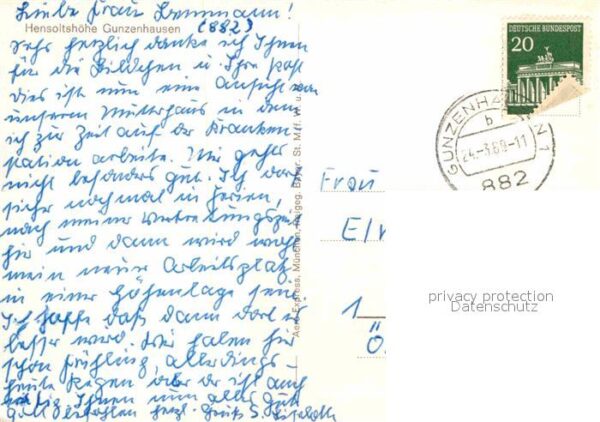 Liebe Frau Brennmann!
Hensoltshöhe Gunzenhausen (882)
Sehr herzlich danke ich Ihnen
für die Bildchen u. Ihre Post
dies ist nun eine Ansicht von
unserem Mutterhaus in dem
ich zur Zeit auf der Kranken
station arbeite. Mir gehts
nicht besonders gut. Ich darf
sicher nochmal in Ferien,
nach meiner Vertretungszeit
hier und dann wird wohl
mein neuer Arbeitsplatz
in einer Höhenlage sein
Ich hoffe daß dann dort es
besser wird. Wir haben hier
schön Frühling, allerdings
heute Regen aber der ist auch
nötig Ihnen nun alles Gute
Gott befohlen herzl. Grüße S.
Aero Express, München, freigeg. Bayer. St. M. f. W. u.
DEUTSCHE BUNDESPOST
20
GUNZENHAUSEN 1
b
24.-3.69-11
882
Frau
1
Ö
privacy protection
Datenschutz